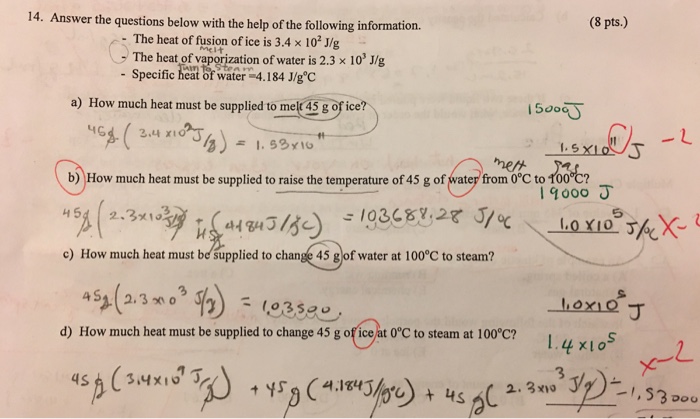 14. Answer the questions below with the help of the following information. (8 pts.)
- The heat of fusion of ice is 3.4 × 10² J/g
melt
- The heat of vaporization of water is 2.3 × 10³ J/g
Turn to steam
- Specific heat of water =4.184 J/g°C
a) How much heat must be supplied to melt 45 g of ice?
15000J
45g ( 3.4 x10² J/g ) = 1.53x10¹¹
1.5x10¹¹ J -2
melt gas
b) How much heat must be supplied to raise the temperature of 45 g of water from 0°C to 100°C?
19000 J
45g ( 2.3x10³ J/g) + 45g (4.184J/g°C) = 103688.28 J/°C
1.0 x10⁵ J/°C X-2
c) How much heat must be supplied to change 45 g of water at 100°C to steam?
45g (2.3x10³ J/g) = 103500.
1.0x10⁵ J
d) How much heat must be supplied to change 45 g of ice at 0°C to steam at 100°C?
1.4 x10⁵
x-2
45g (3.4x10⁹ J/g) + 45g (4.184J/g°C) + 45g( 2.3x10³ J/g) = 1.53000